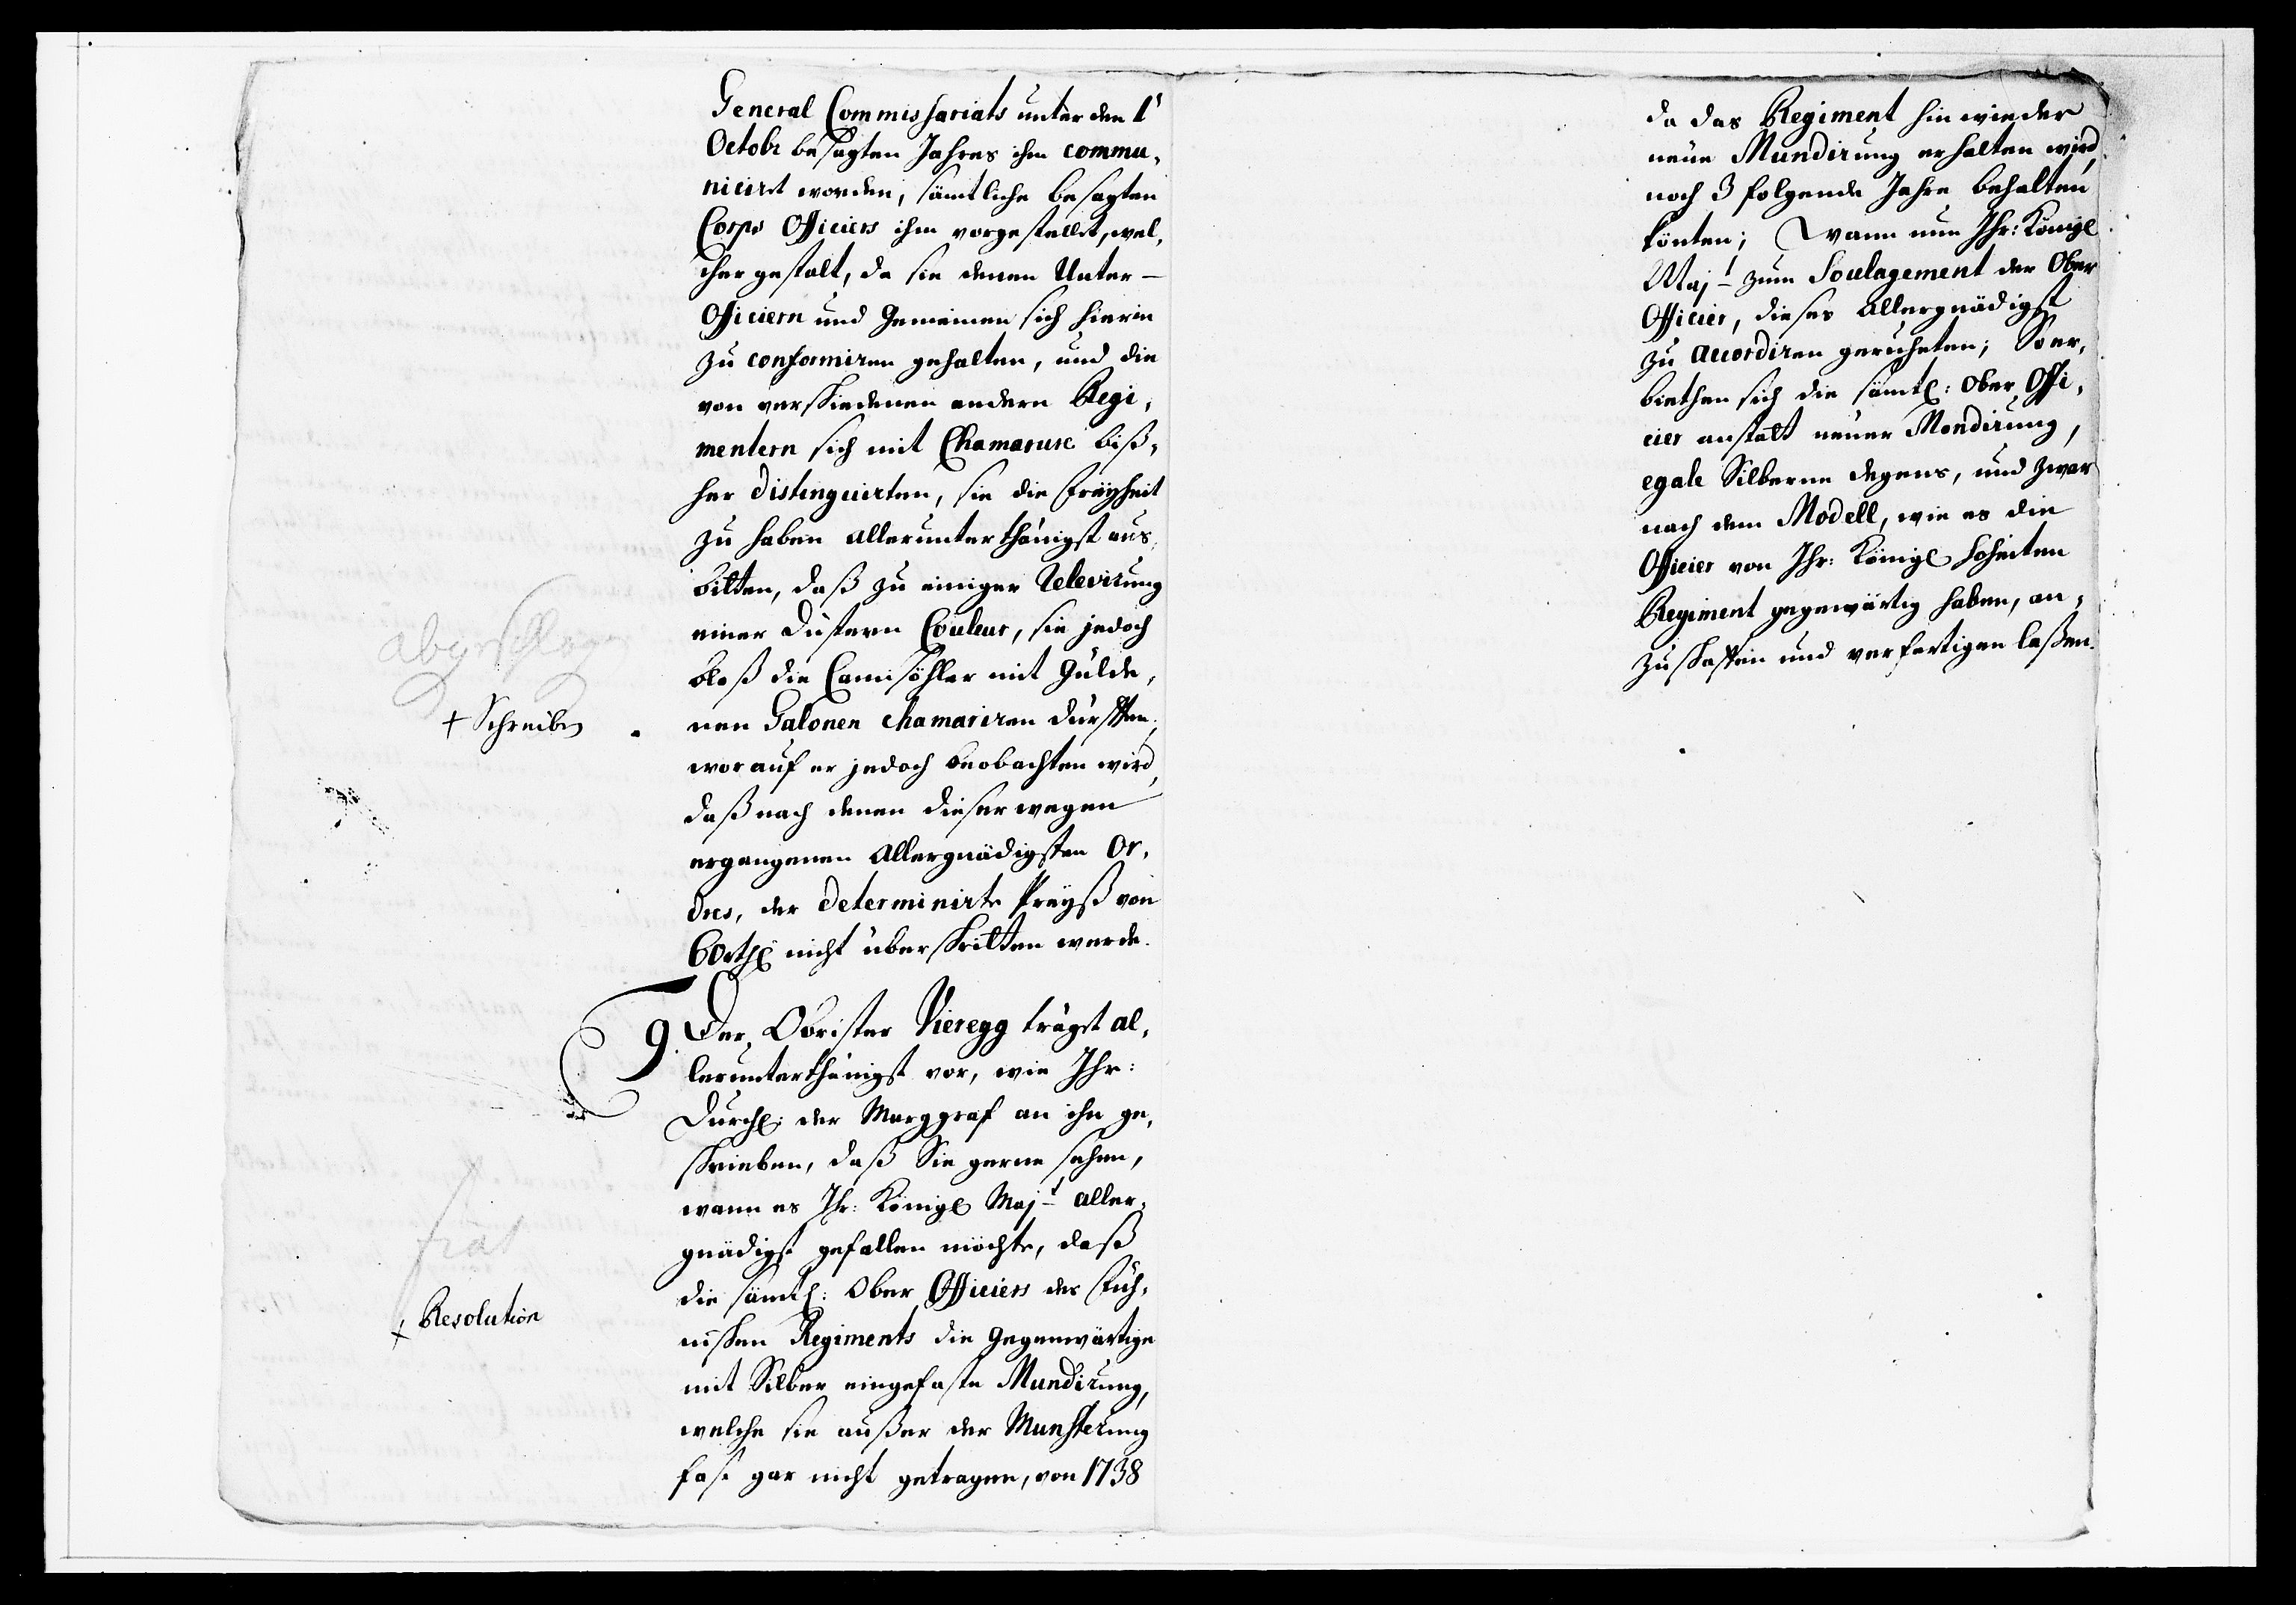 General Commissariats unter den 1t
Octobr besagten Jahres ihm commu,
niciret worden, sämtliche besagten
Corps Officiers ihm vorgestellet, wel,
cher gestalt, da sie denen Unter-
Officiern und Gemeinen sich hierin
zu conformiren gehalten, und die
von verschiedenen andern Regi,
mentern sich mit Chamarure biß,
her distinguirten, sie die Freyheit
zu haben allerunterthänigst aus,
bitten, daß zu einiger Relevirung
einer dustern Couleur, sie jedoch
bloß die Camisöhler mit Gülde,
nen Galonen chamariren dürfften,
worauf er jedoch beobachten wird,
daß nach denen dieserwegen
ergangenen Allergnädigsten Or,
dres, der determinirte Preyß von
60 rthl nicht überschritten werde.
abgeschlagen
+ Schreiben
9. Der Obrister Vieregg träget al,
lerunterthänigst vor, wie Ihr:
Durchl: der Marggraf an ihn ge,
schrieben, daß Sie gerne sehen,
wann es Ihr: Königl Majt aller,
gnädigst gefallen möchte, daß
die sämtl: Ober Officiers des Füh,
nischen Regiments die Gegenwärtige
mit Silber eingefaste Mundirung,
welche sie außer der Munsterung
fast gar nicht getragen, von 1738
+ Resolution
da das Regiment hinwieder
neue Mundirung erhalten wird,
noch 3 folgende Jahre behalten
könten; Wann nun Ihr: Königl
Majt zum Soulagement der Ober
Officier, dieses Allergnädigst
zu accordiren geruheten; So er,
biethen sich die sämtl: Ober Offi,
cier anstatt neuer Mondirung,
egale Silberne degens, und zwar
nach dem Modell, wie es die
Officier von Ihr: Königl Hoheiten
Regiment gegenwärtig haben, an,
zuschaffen und verfertigen laßen.